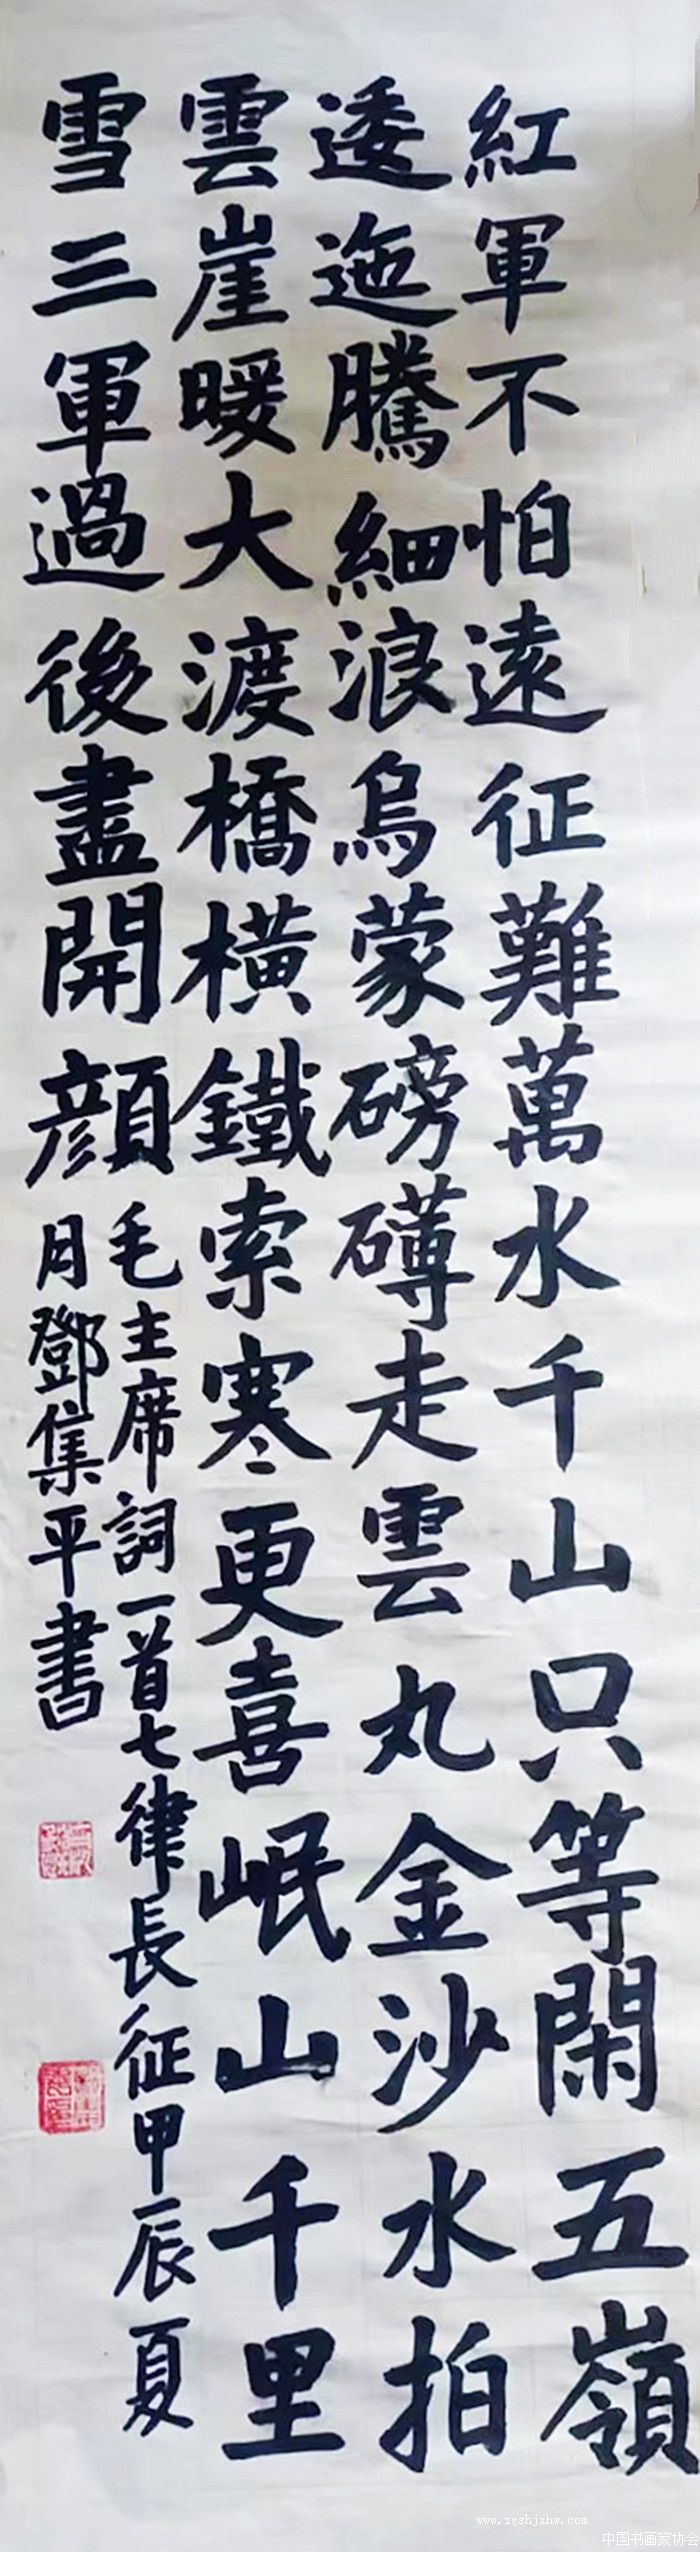 紅軍不怕遠征難萬水千山只等閑五嶺
逶迤騰細浪烏蒙磅礴走雲丸金沙水拍
雲崖暖大渡橋橫鐵索寒更喜岷山千里
雪三軍過後盡開顏
毛主席詞一首七律長征甲辰夏
月鄧集平書
www.zgshjxhw.com
中国书画家协会